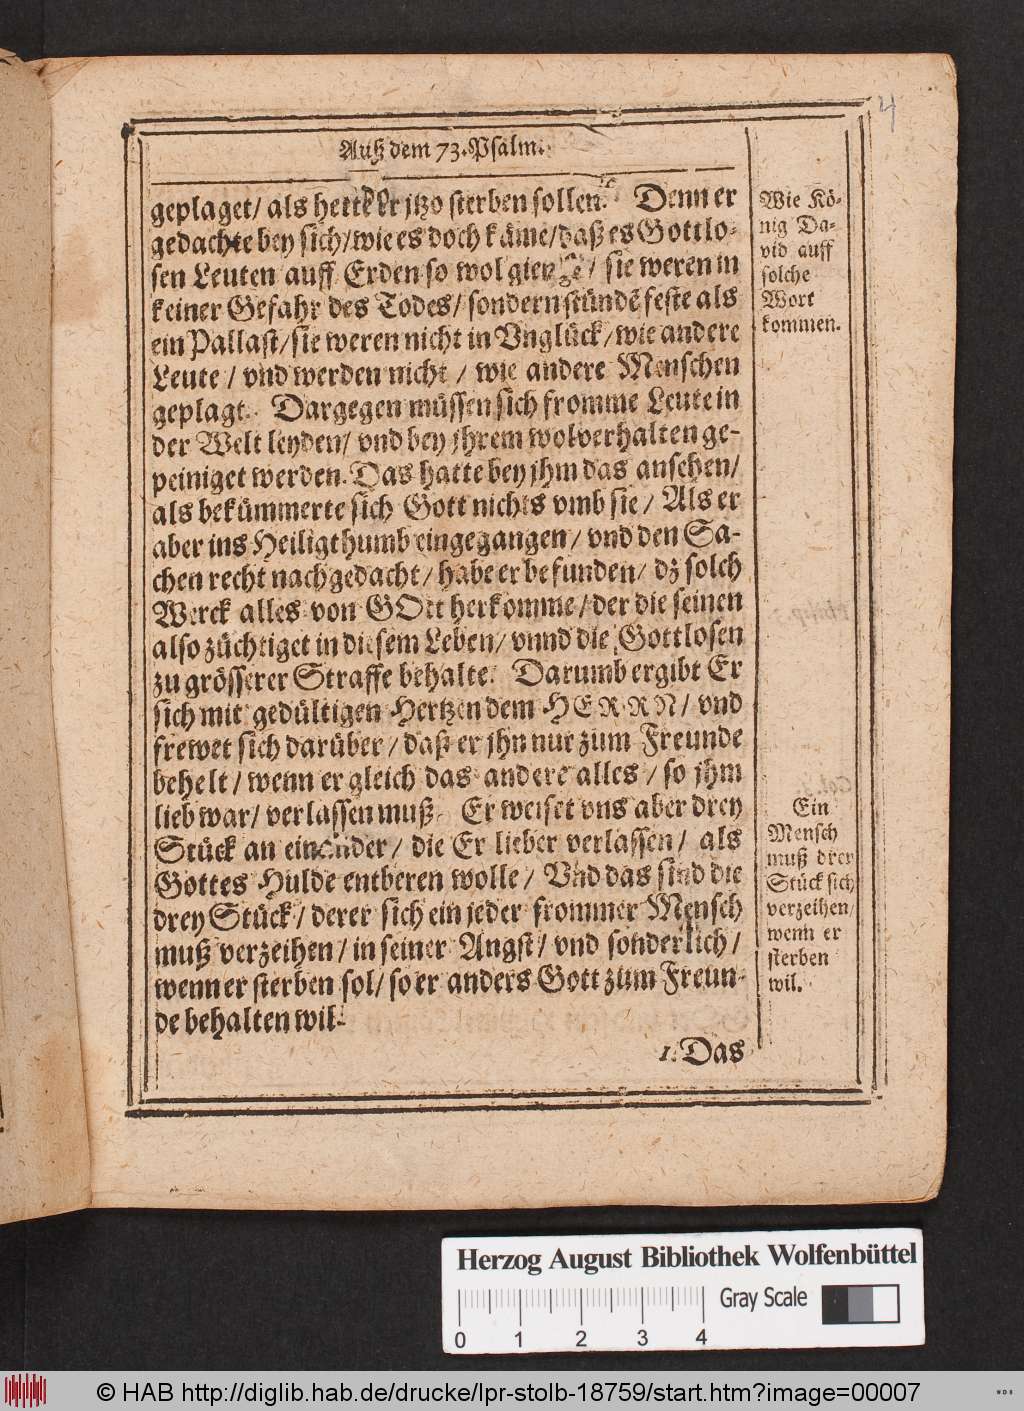 4
Auß dem 73. Psalm.
geplaget/ als hette Er jtzo sterben sollen. Denn er
gedachte bey sich/ wie es doch käme/ daß es Gottlo-
sen Leuten auff Erden so wol gienge/ sie weren in
keiner Gefahr des Todes/ sondern stündē feste als
ein Pallast/ sie weren nicht in Vnglück/ wie andere
Leute/ vnd werden nicht/ wie andere Menschen
geplagt. Dargegen müssen sich fromme Leute in
der Welt leyden/ vnd bey jhrem wolverhalten ge-
peiniget werden. Das hatte bey jhm das ansehen/
als bekümmerte sich Gott nichts vmb sie/ Als er
aber ins Heiligthumb eingegangen/ vnd den Sa-
chen recht nachgedacht/ habe er befunden/ dz solch
Werck alles von GOtt herkomme/ der die seinen
also züchtiget in diesem Leben/ vnnd die Gottlosen
zu grösserer Straffe behalte. Darumb ergibt Er
sich mit gedültigen Hertzen dem HERRN/ vnd
frewet sich darüber/ daß er jhn nur zum Freunde
behelt/ wenn er gleich das andere alles/ so jhm
lieb war/ verlassen muß. Er weiset vns aber drey
Stück an einander/ die Er lieber verlassen/ als
Gottes Hulde entberen wolle/ Vnd das sind die
drey Stück/ derer sich ein jeder frommer Mensch
muß verzeihen/ in seiner Angst/ vnd sonderlich/
wenn er sterben sol/ so er anders Gott zum Freun-
de behalten wil.
1. Das
Wie Kö-
nig Da-
vid auff
solche
Wort
kommen.
Ein
Mensch
muß drey
Stück sich
verzeihen/
wenn er
sterben
wil.
Herzog August Bibliothek Wolfenbüttel
0 1 2 3 4
Gray Scale
© HAB http://diglib.hab.de/drucke/lpr-stolb-18759/start.htm?image=00007